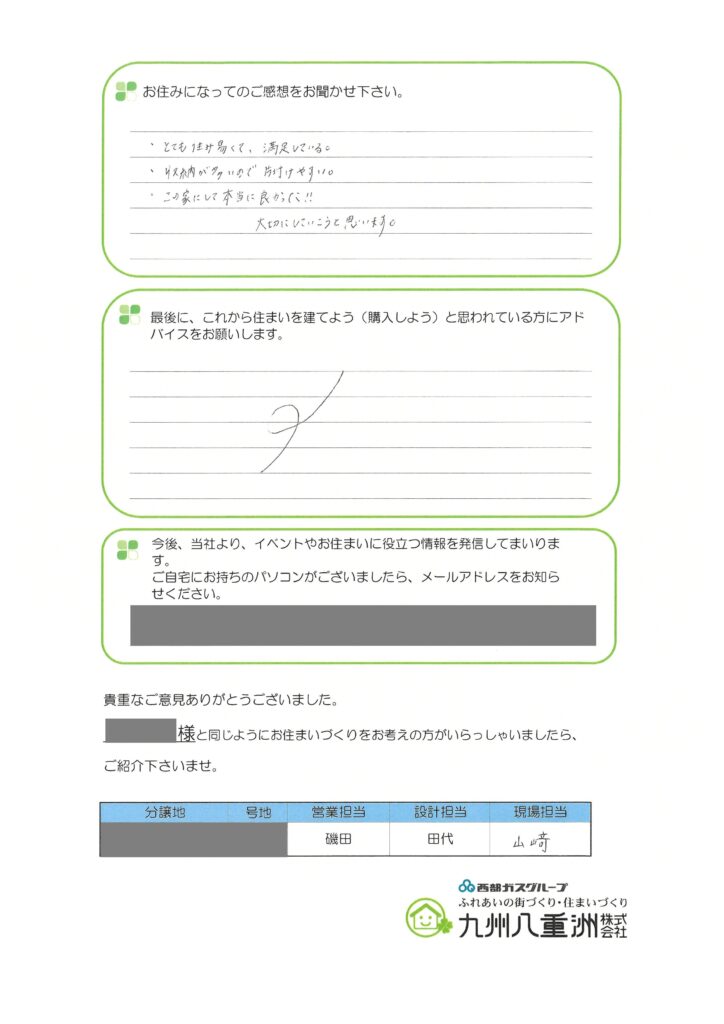 お住みになってのご感想をお聞かせ下さい。
・とても住み易くて、満足している。
・収納が多いので片付けやすい。
・この家にして本当に良かった!!
大切にしていこうと思います。
最後に、これから住まいを建てよう（購入しよう）と思われている方にアド
バイスをお願いします。
今後、当社より、イベントやお住まいに役立つ情報を発信してまいりま
す。
ご自宅にお持ちのパソコンがございましたら、メールアドレスをお知ら
せください。
貴重なご意見ありがとうございました。
様と同じようにお住まいづくりをお考えの方がいらっしゃいましたら、
ご紹介下さいませ。
分譲地 号地 営業担当 設計担当 現場担当
磯田 田代 山﨑
西部ガスグループ
ふれあいの街づくり・住まいづくり
九州八重洲株式会社